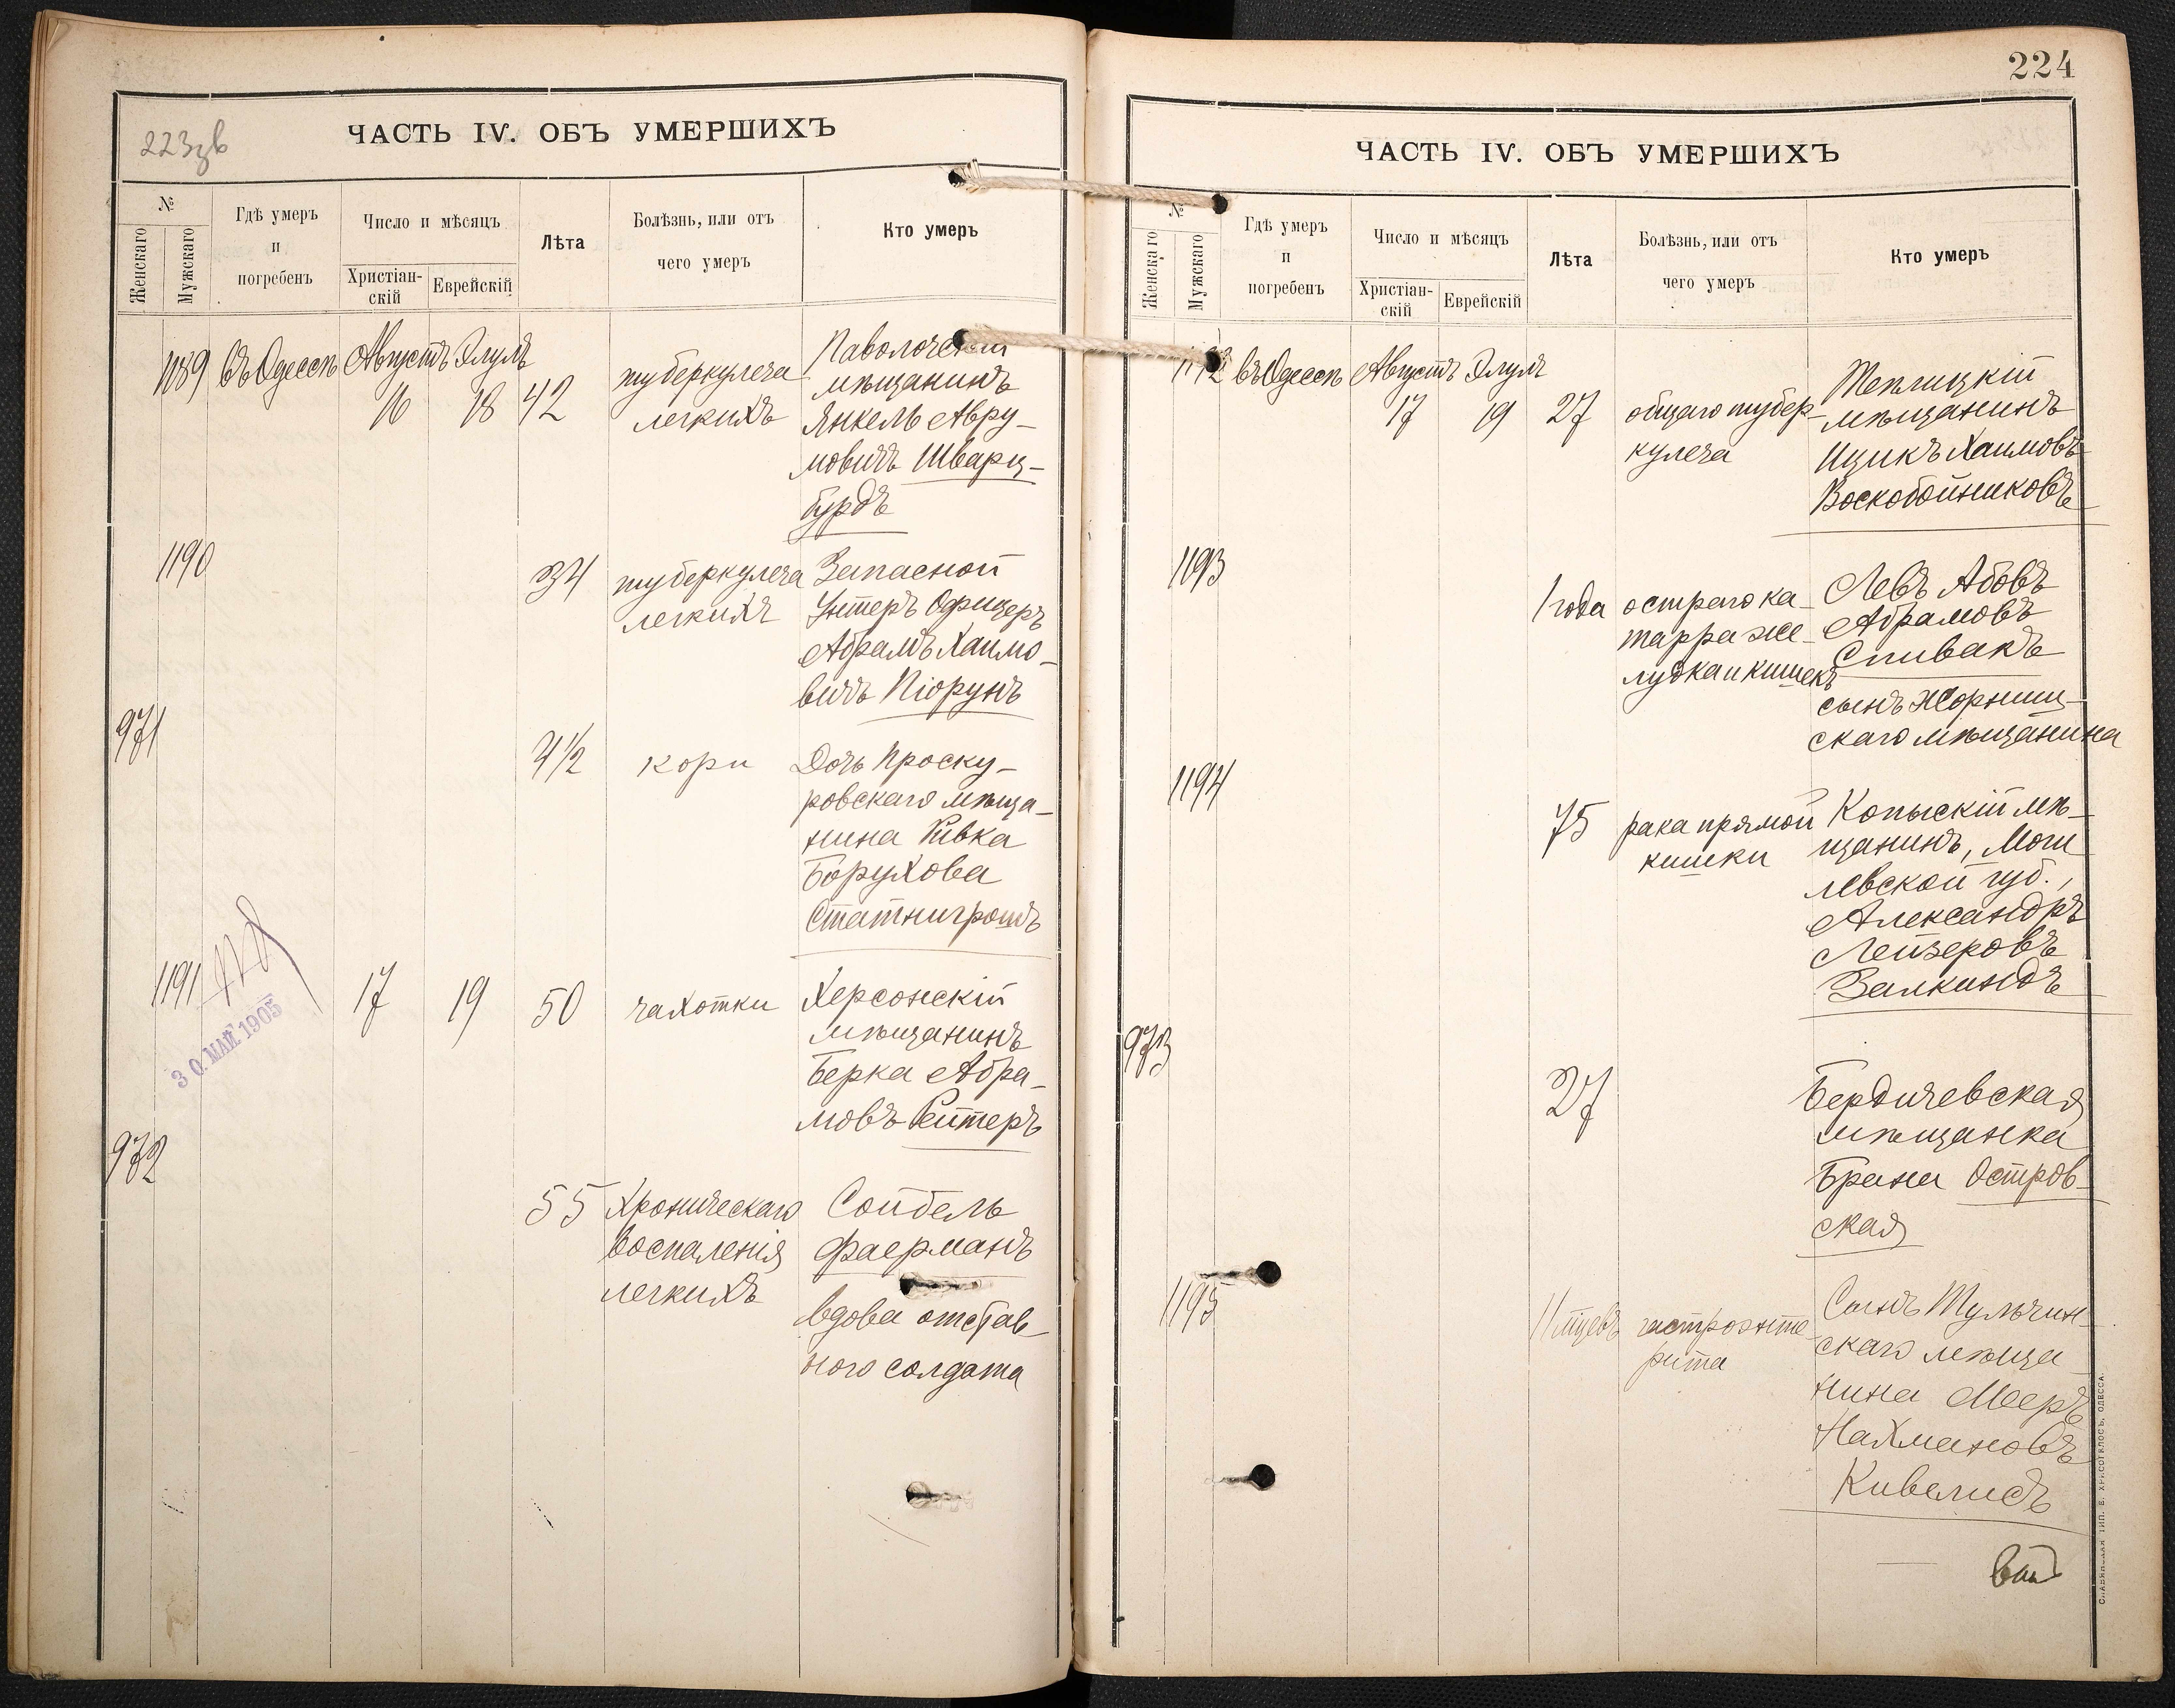 223 зв
ЧАСТЬ IV. ОБЪ УМЕРШИХЪ
№
Женскаго
Мужскаго
Гдѣ умеръ
и
погребенъ
Число и мѣсяцъ
Христіан-
скій
Еврейскій
Лѣта
Болѣзнь, или отъ
чего умеръ
Кто умеръ
1189 въ Одессѣ Августъ Элулъ
16 18 42
туберкулеза
легкихъ
Паволочскій
мѣщанинъ
Янкель Авру-
мовичъ Шварц-
бурдъ
1190
34
туберкулеза
легкихъ
Запасной
Унтеръ Офицеръ
Абрамъ Хаимо-
вичъ Піорунъ
971
4½
кори
Дочь Проску-
ровскаго мѣща-
нина Ривка
Борухова
Статнигрошъ
1191
30. МАЙ 1905
17 19 50
чахотки
Херсонскій
мѣщанинъ
Берка Абра-
мовъ Рейтеръ
972
55
Хроническаго
воспаленія
легкихъ
Сойбель
Фаерманъ
вдова отстав-
ного солдата
224
ЧАСТЬ IV. ОБЪ УМЕРШИХЪ
№
Женскаго
Мужскаго
Гдѣ умеръ
и
погребенъ
Число и мѣсяцъ
Христіан-
скій
Еврейскій
Лѣта
Болѣзнь, или отъ
чего умеръ
Кто умеръ
1192 въ Одессѣ Августъ Элулъ
17 19 27
общаго тубер-
кулеза
Теплицкій
мѣщанинъ
Ицикъ Хаимовъ
Воскобойниковъ
1193
1 года
остраго ка-
тарра же-
лудка и кишекъ
Левъ Абовъ
Абрамовъ
Спивакъ
сынъ Жорнищ-
скаго мѣщанина
1194
75
рака прямой
кишки
Копыскій мѣ-
щанинъ, Моги
левской губ.,
Александръ
Лейзеровъ
Залкиндъ
973
27
Бердичевская
мѣщанка
Брана Остров-
ская
1195
11 мцевъ
гастроэнте-
рита
Сынъ Тульчин-
скаго мѣща-
нина Мееръ
Нахмановъ
Кивелидъ
СЛАВЯНСКАЯ ТИП. Е. ХРИСОГЕЛОСЪ, ОДЕССА.